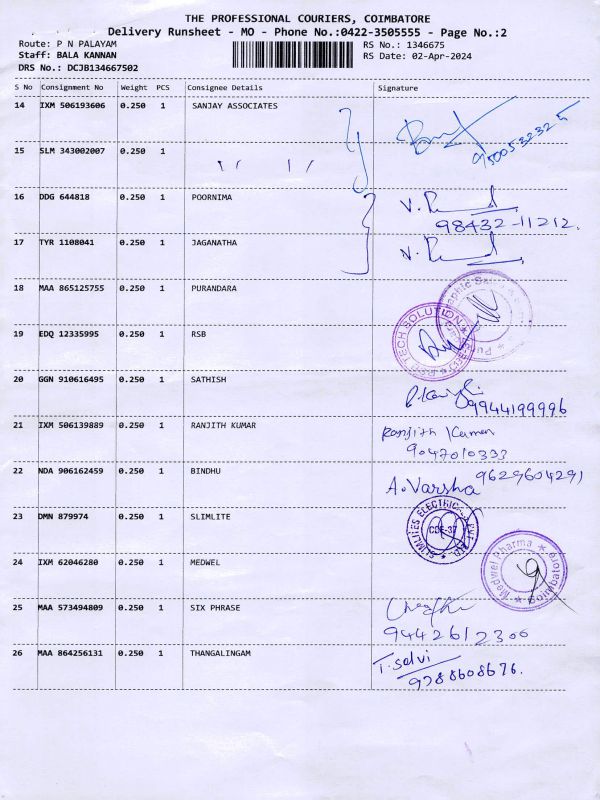 THE PROFESSIONAL COURIERS, COIMBATORE
Delivery Runsheet - MO - Phone No.:0422-3505555 - Page No.:2
Route: P N PALAYAM RS No.: 1346675
Staff: BALA KANNAN RS Date: 02-Apr-2024
DRS No.: DCJB134667502
S No Consignment No Weight PCS Consignee Details Signature
14 IXM 506193606 0.250 1 SANJAY ASSOCIATES
15 SLM 343002007 0.250 1
16 DDG 644818 0.250 1 POORNIMA
98432-11212.
17 TYR 1108041 0.250 1 JAGANATHA
18 MAA 865125755 0.250 1 PURANDARA
19 EDQ 12335995 0.250 1 RSB
TECH SOLUTION
20 GGN 910616495 0.250 1 SATHISH
9944199996
21 IXM 506139889 0.250 1 RANJITH KUMAR Ranjith Kumar
9047010333
22 NDA 906162459 0.250 1 BINDHU 9629604291
A. Varsha
23 DMN 879974 0.250 1 SLIMLITE
SLIMLITES ELECTRICALS PVT. LTD.
CBE-37
24 IXM 62046280 0.250 1 MEDWEL
Medwel Pharma ★ Coimbatore ★
25 MAA 573494809 0.250 1 SIX PHRASE
9442612300
26 MAA 864256131 0.250 1 THANGALINGAM T. Selvi
9788608676.